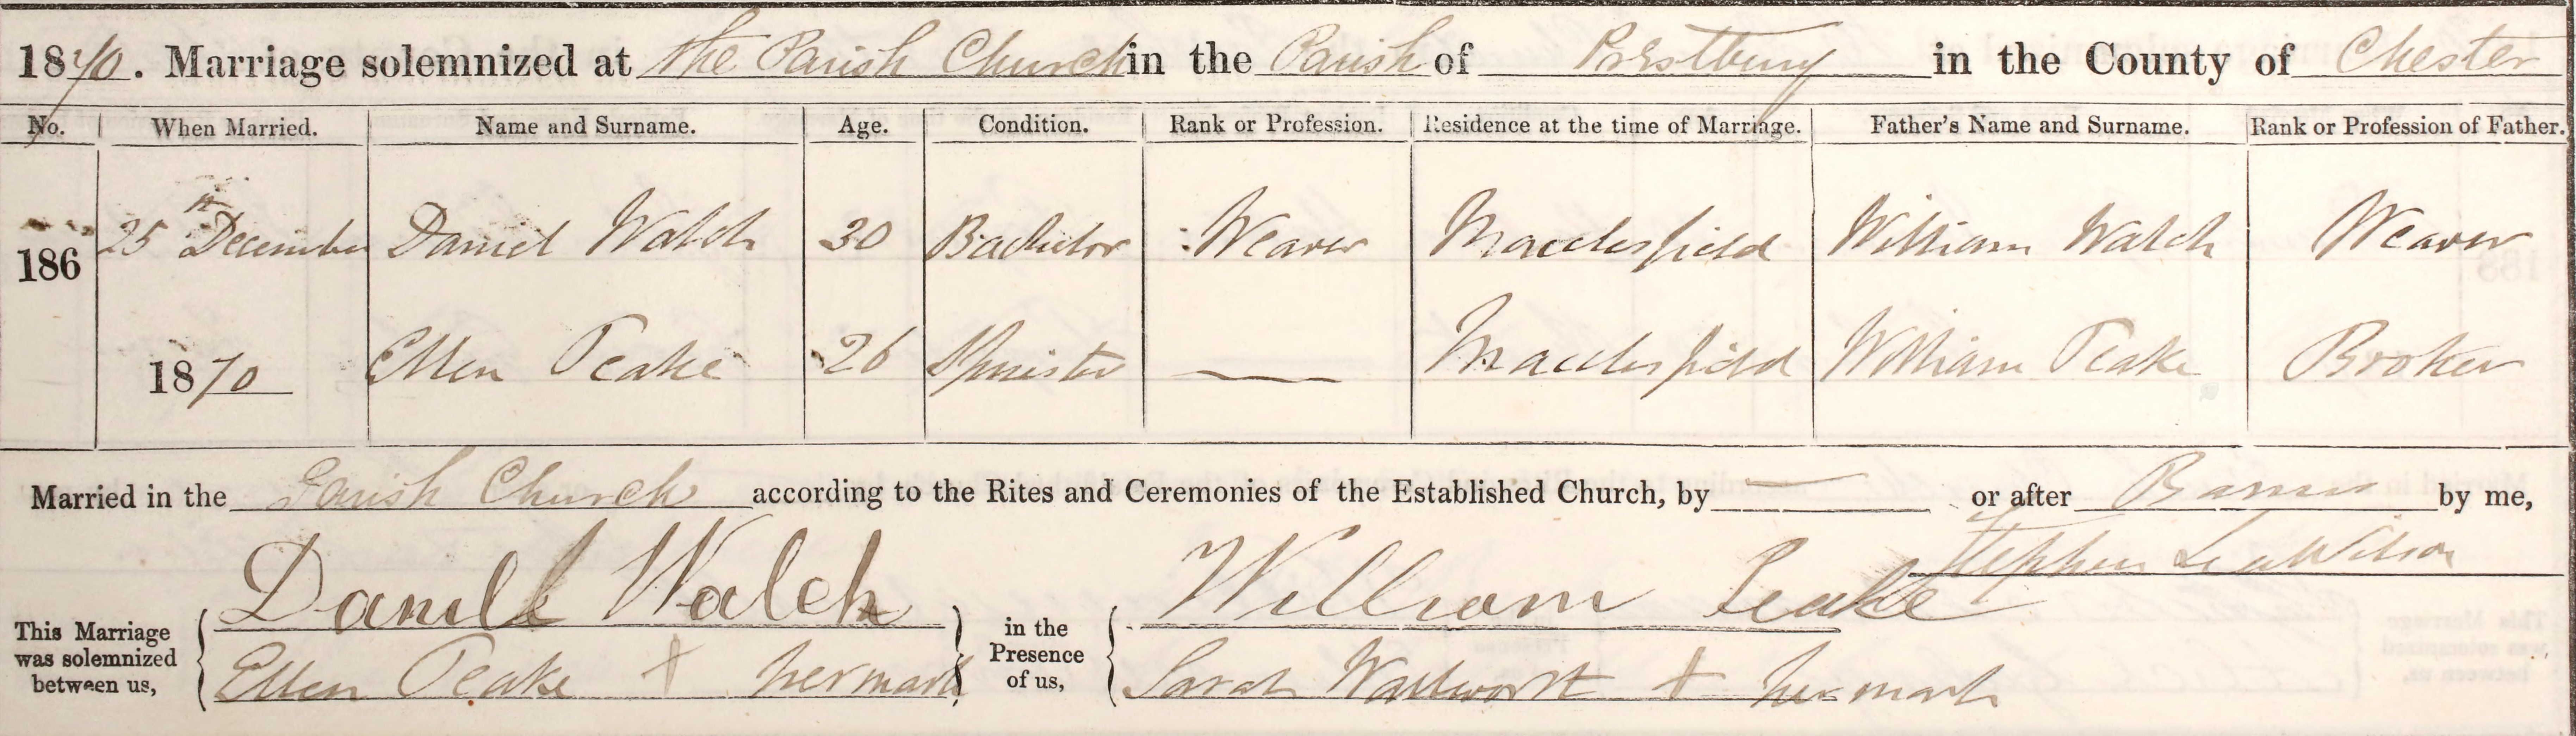 1870. Marriage solemnized at the Parish Church in the Parish of Prestbury in the County of Chester
No. When Married. Name and Surname. Age. Condition. Rank or Profession. Residence at the time of Marriage. Father's Name and Surname. Rank or Profession of Father.
186 25th December Daniel Walch 30 Bachelor Weaver Macclesfield William Walch Weaver
1870 Ellen Peake 26 Spinster — Macclesfield William Peake Broker
Married in the Parish Church according to the Rites and Ceremonies of the Established Church, by — or after Banns by me,
Stephen Lea Wilson
This Marriage was solemnized between us, Daniel Walch in the Presence of us, William Peake
Ellen Peake + her mark Sarah Wallworth + her mark